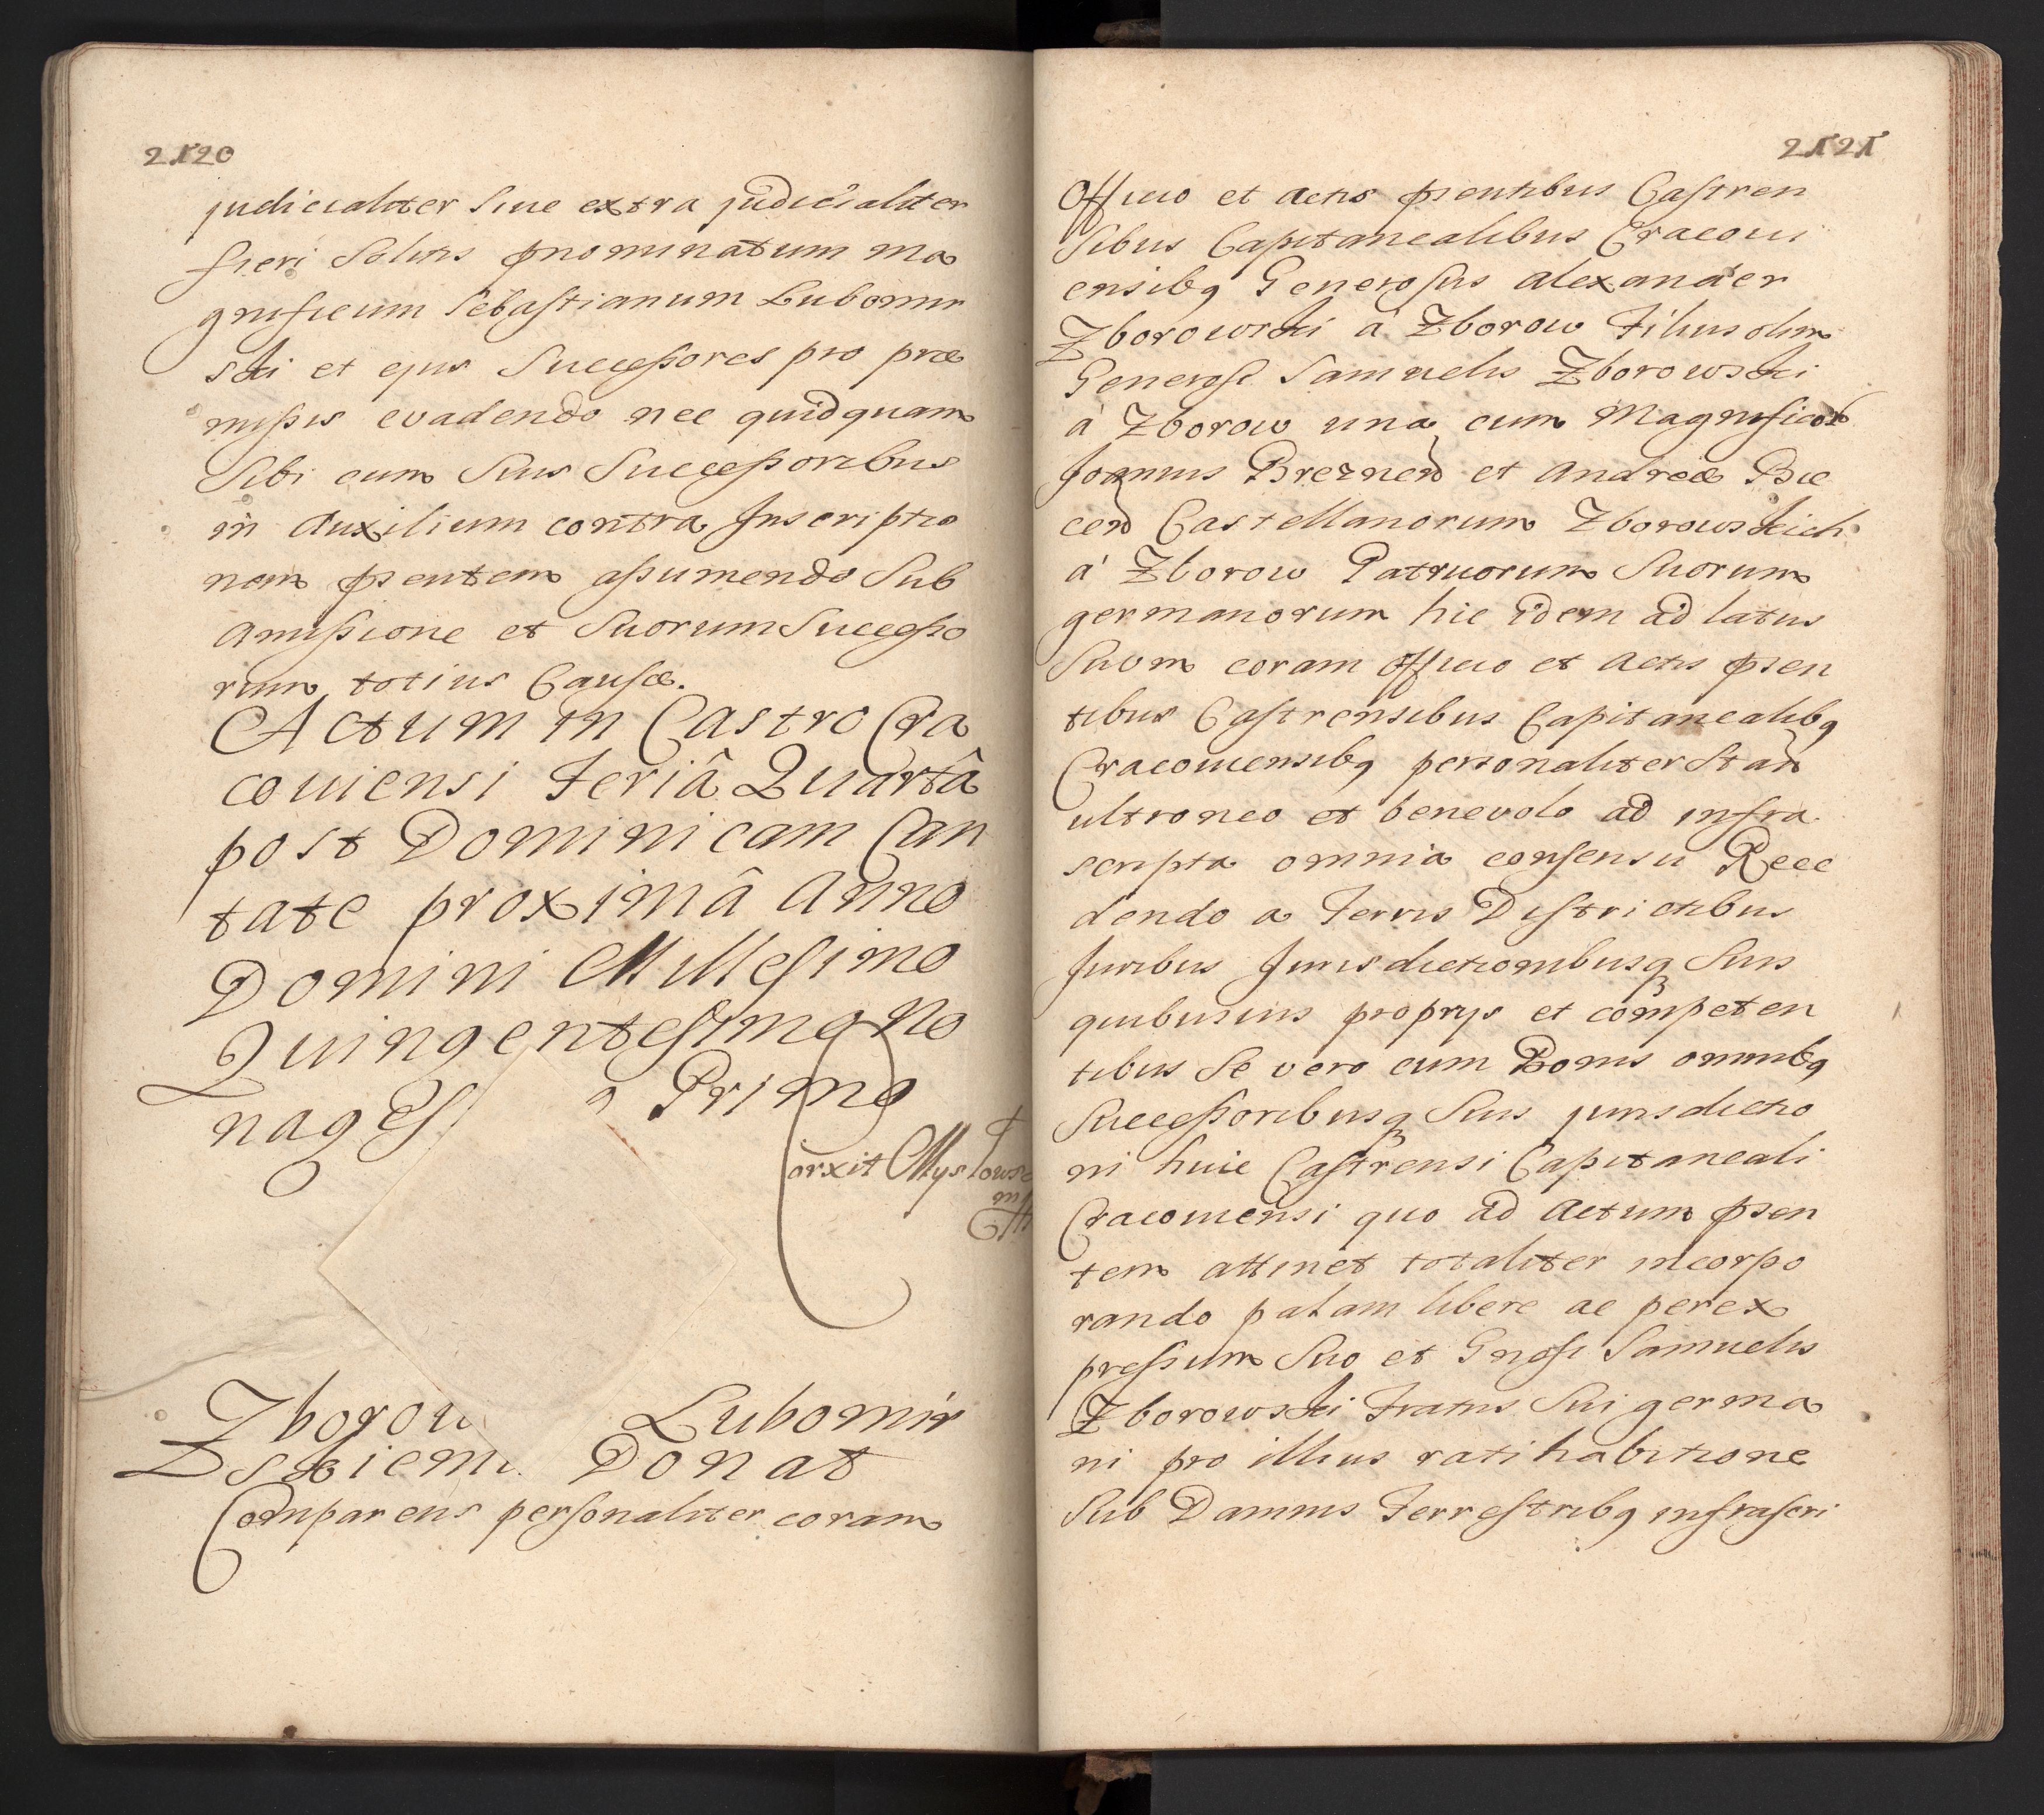 2120
judicialiter Sine extra judicialiter
fieri Solitis pnominatum Ma
gnificum Sebastianum Lubomir
ski et ejus Successores pro præ
missis evadendo nec quidquam
Sibi cum Suis Successoribus
in Auxilium contra Inscriptio
nem psentem assumendo Sub
Amissione et Suorum Successo
rum totius Causæ.
Actum in Castro Cra
coviensi Feriâ Quartâ
post Dominicam Can
tate proximâ Anno
Domini Millesimo
Quingentesimo No
nages o Primo
Corxit Mysłows
Zborow Lubomir
skiem Donat
Comparens personaliter coram
2121
Officio et Actis psentibus Castren
sibus Capitanealibus Cracovi
ensibq Generosus Alexander
Zborowski á Zborow Filius olim
Generosi Samuelis Zborowski
á Zborow una cum Magnificor
Joannis Breznen et Andreæ Bie
cen Castellanorum Zborowskich
á Zborow Patruorum Suorum
germanorum hic idem ad latus
Suum coram Officio et Actis psen
tibus Castrensibus Capitanealibq
Cracoviensibq personaliter Stan
ultroneo et benevolo ad infra
scripta omnia consensu Rece
dendo a Terris Districtibus
Juribus Jurisdictionibusq Suis
quibusvis proprys et competen
tibus Se vero cum Bonis omnibq
Successoribusq Suis jurisdictio
ni huic Castrensi Capitaneali
Cracoviensi quo ad Actum psen
tem attinet totaliter incorpo
rando palam libere ac per ex
pressum Suo et Gnosi Samuelis
Zborowski Fratris Sui germa
ni pro illius ratihabitione
Sub Damnis Terrestribq infrascri